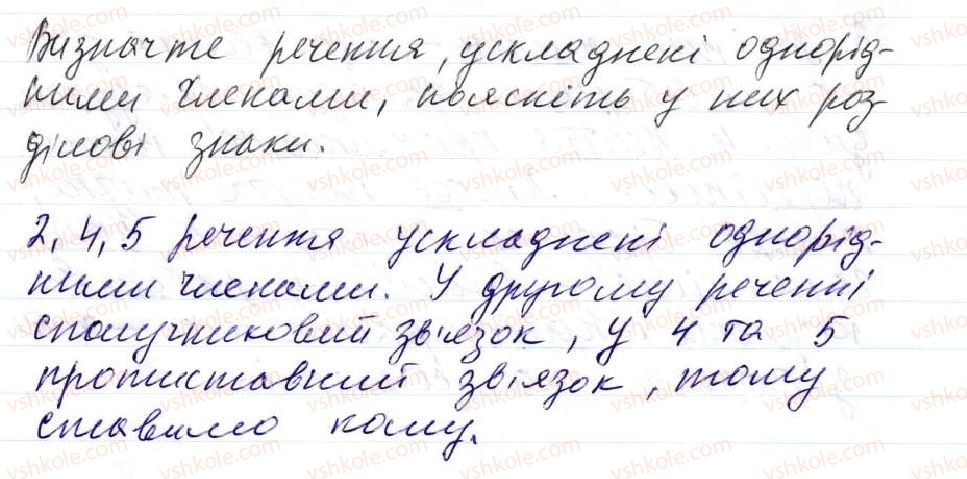 Визначте речення, ускладнені однорід-
ними членами, поясніть у них роз-
ділові знаки.
2, 4, 5 речення ускладнені однорід-
ними членами. У другому реченні
сполучниковий зв'язок, у 4 та 5
протиставний зв'язок, тому
ставимо кому.